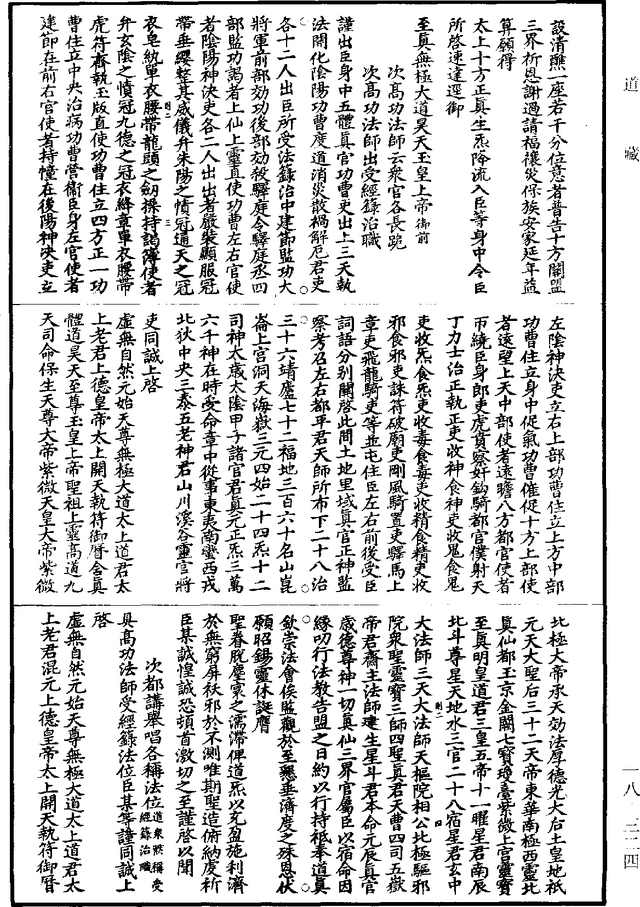 道藏
設清醮一座若干分位意者普告十方關盟
三界祈恩謝過請福禳災保族安家延年益
算願得
太上十方正真生炁降流入臣等身中令臣
所啓速達逕御
至真無極大道昊天玉皇上帝御前
次高功法師云衆官各長跪
次高功法師出受經籙治職
謹出臣身中五體真官功曹吏出上三天執
法開化陰陽功曹度道消災散禍解厄君吏
各十二人出臣所受法籙治中建節監功大
將軍前部効功後部効殺驛庭令驛庭丞四
部監功謁者上仙上靈直使功曹左右官使
者陰陽神決吏各二人出出者嚴裝顯服冠
帶垂纓整其威儀弁朱陽之幘冠通天之冠
衣皂紈單衣腰帶龍頭之劒操持謁簿使者
弁玄陰之幘冠九德之冠衣絳章單衣腰帶
虎符齊執玉版直使功曹住立四方正一功
曹住立中央治病功曹營衞臣身左官使者
建節在前右官使者持幢在後陽神決吏立
左陰神決吏立右上部功曹住立上方中部
功曹住立身中促氣功曹催促十方上部使
者遠望上天中部使者遠瞻八方都官使者
帀繞臣身郎吏虎賁察奸鈎騎都官僕射天
丁力士治正執正吏收神食神吏收鬼食鬼
吏收炁食炁吏收毒食毒吏收精食精吏收
邪食邪吏誅符破廟吏剛風騎置吏驛馬上
章吏飛龍騎吏等並屯住臣左右前後受臣
詞語分別關啓此間土地里域真官正神監
察考召左右都平君天師所布下二十八治
三十六靖廬七十二福地三百六十名山崑
崙上宮洞天海嶽三元四始二十四炁十二
司神太歲太陰甲子諸官君真元正炁三萬
六千神在時受命章中從事東夷南蠻西戎
北狄中央三秦五老神君山川溪谷靈官將
吏同誠上啓
虛無自然元始天尊無極大道太上道君太
上老君上德皇帝太上開天執符御曆含真
體道昊天至尊玉皇上帝聖祖上靈高道九
天司命保生天尊大帝紫微天皇大帝紫微
北極大帝承天効法厚德光大后土皇地祇
元天大聖后三十二天帝東華南極西靈北
真仙都玉京金闕七寶瓊臺紫微上宮靈寶
至真明皇道君三皇五帝十一曜星君南辰
北斗尊星天地水三官二十八宿星君玄中
大法師三天大法師天樞院相公北極驅邪
院衆聖靈寶三師四聖真君天曹四司五嶽
帝君齋主法師建生星斗君本命元辰真官
歲德尊神一切真仙三界官屬臣以宿命因
緣叨行法教告盟之日約以行持祗奉道真
欽崇法會俟監觀於至懇垂濟度之殊恩伏
願昭錫靈休誕膺
聖眷脫塵寰之濡滯俾道炁以充盈施利濟
於無窮屏袄邪於不測唯期聖造俯納虔祈
臣某誠惶誠恐頓首激切之至謹啓以聞
次都講舉唱各稱法位道衆默稱受經籙治職
具高功法師受經籙法位臣某等謹同誠上
啓
虛無自然元始天尊無極大道太上道君太
上老君混元上德皇帝太上開天執符御曆
一八、三二四